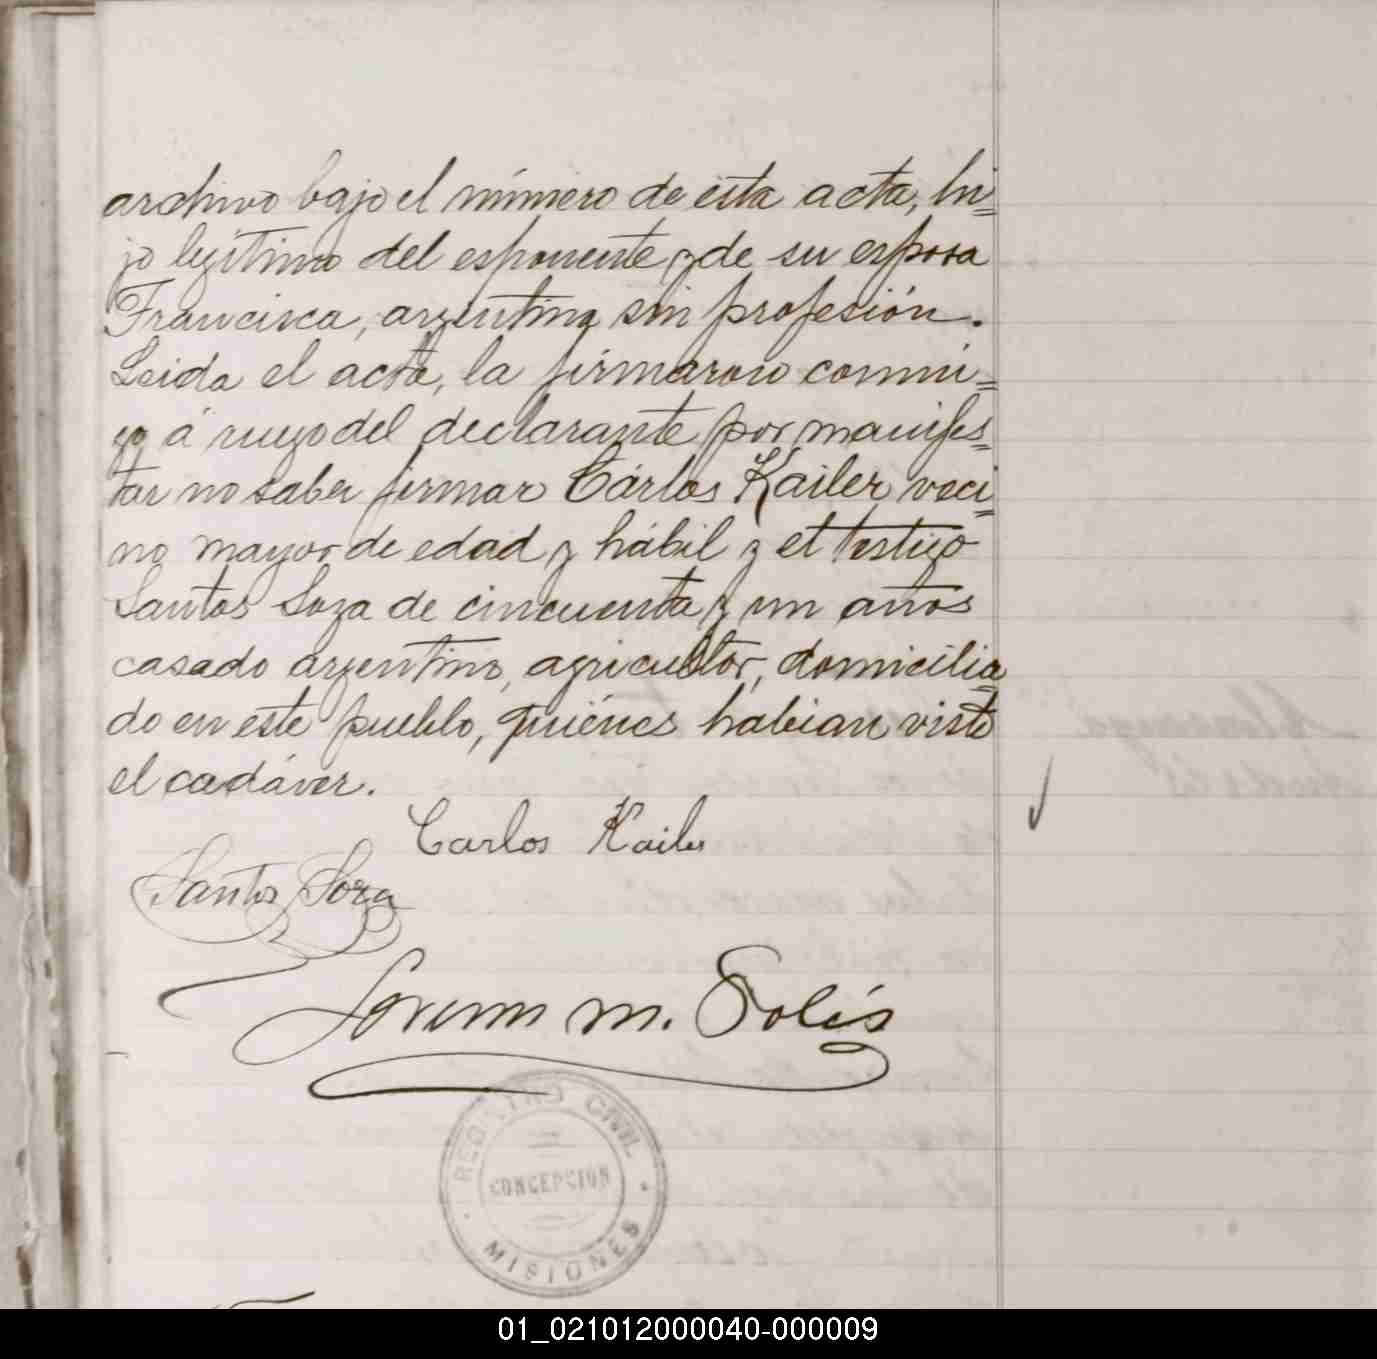 archivo bajo el número de esta acta, hi=
jo legítimo del esponente y de su esposa
Francisca, argentina sin profesión.
Leida el acta, la firmaron conmi=
go á ruego del declarante por manifes=
tar no saber firmar Cárlos Kailer veci=
no mayor de edad y hábil y el testigo
Santos Soza de cincuenta y un años
casado argentino, agricultor, domicilia
do en este pueblo, quiénes habian visto
el cadáver.
Carlos Kailer
Santos Soza
Lorenzo M. Solís
REGISTRO CIVIL
CONCEPCIÓN
MISIONES
01_021012000040-000009